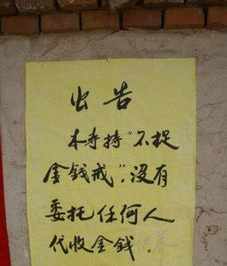 公告
本寺持“不捉
金钱戒”,没有
委托任何人
代收金钱.